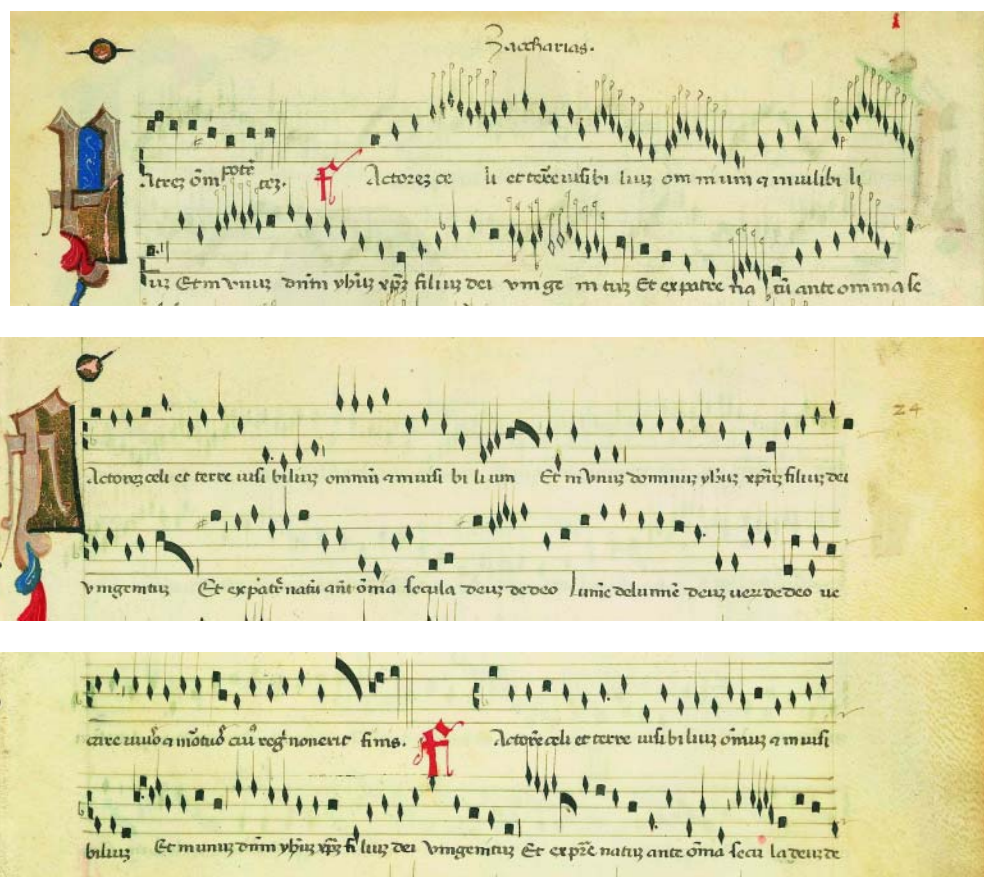 Zaccharias.
Patrez om̄potētez. Factorez celi et terre uisibi liuz om nium et inuisibi li
uz Et in vnuz dnm yhuz xpz filiuz dei vnige nituz Et ex patre na tū ante omnia se
24
Factorez celi et terre uisi biliuz omniū et inuisi bi li um Et in vnuz dominuz yhuz xpuz filiuz dei
vnigenituz Et ex patre natū ant oma secula deuz de deo lumē de lumīe deuz ueruz de deo ue
care uiuos et mortuos cui regni non erit finis. Factorē celi et terre uisi biliuz omīuz et in uisi
biliuz Et in unuz dnm yhuz xpz fi liuz dei Vnigenituz Et ex pre natuz ante omā secu la deuz de